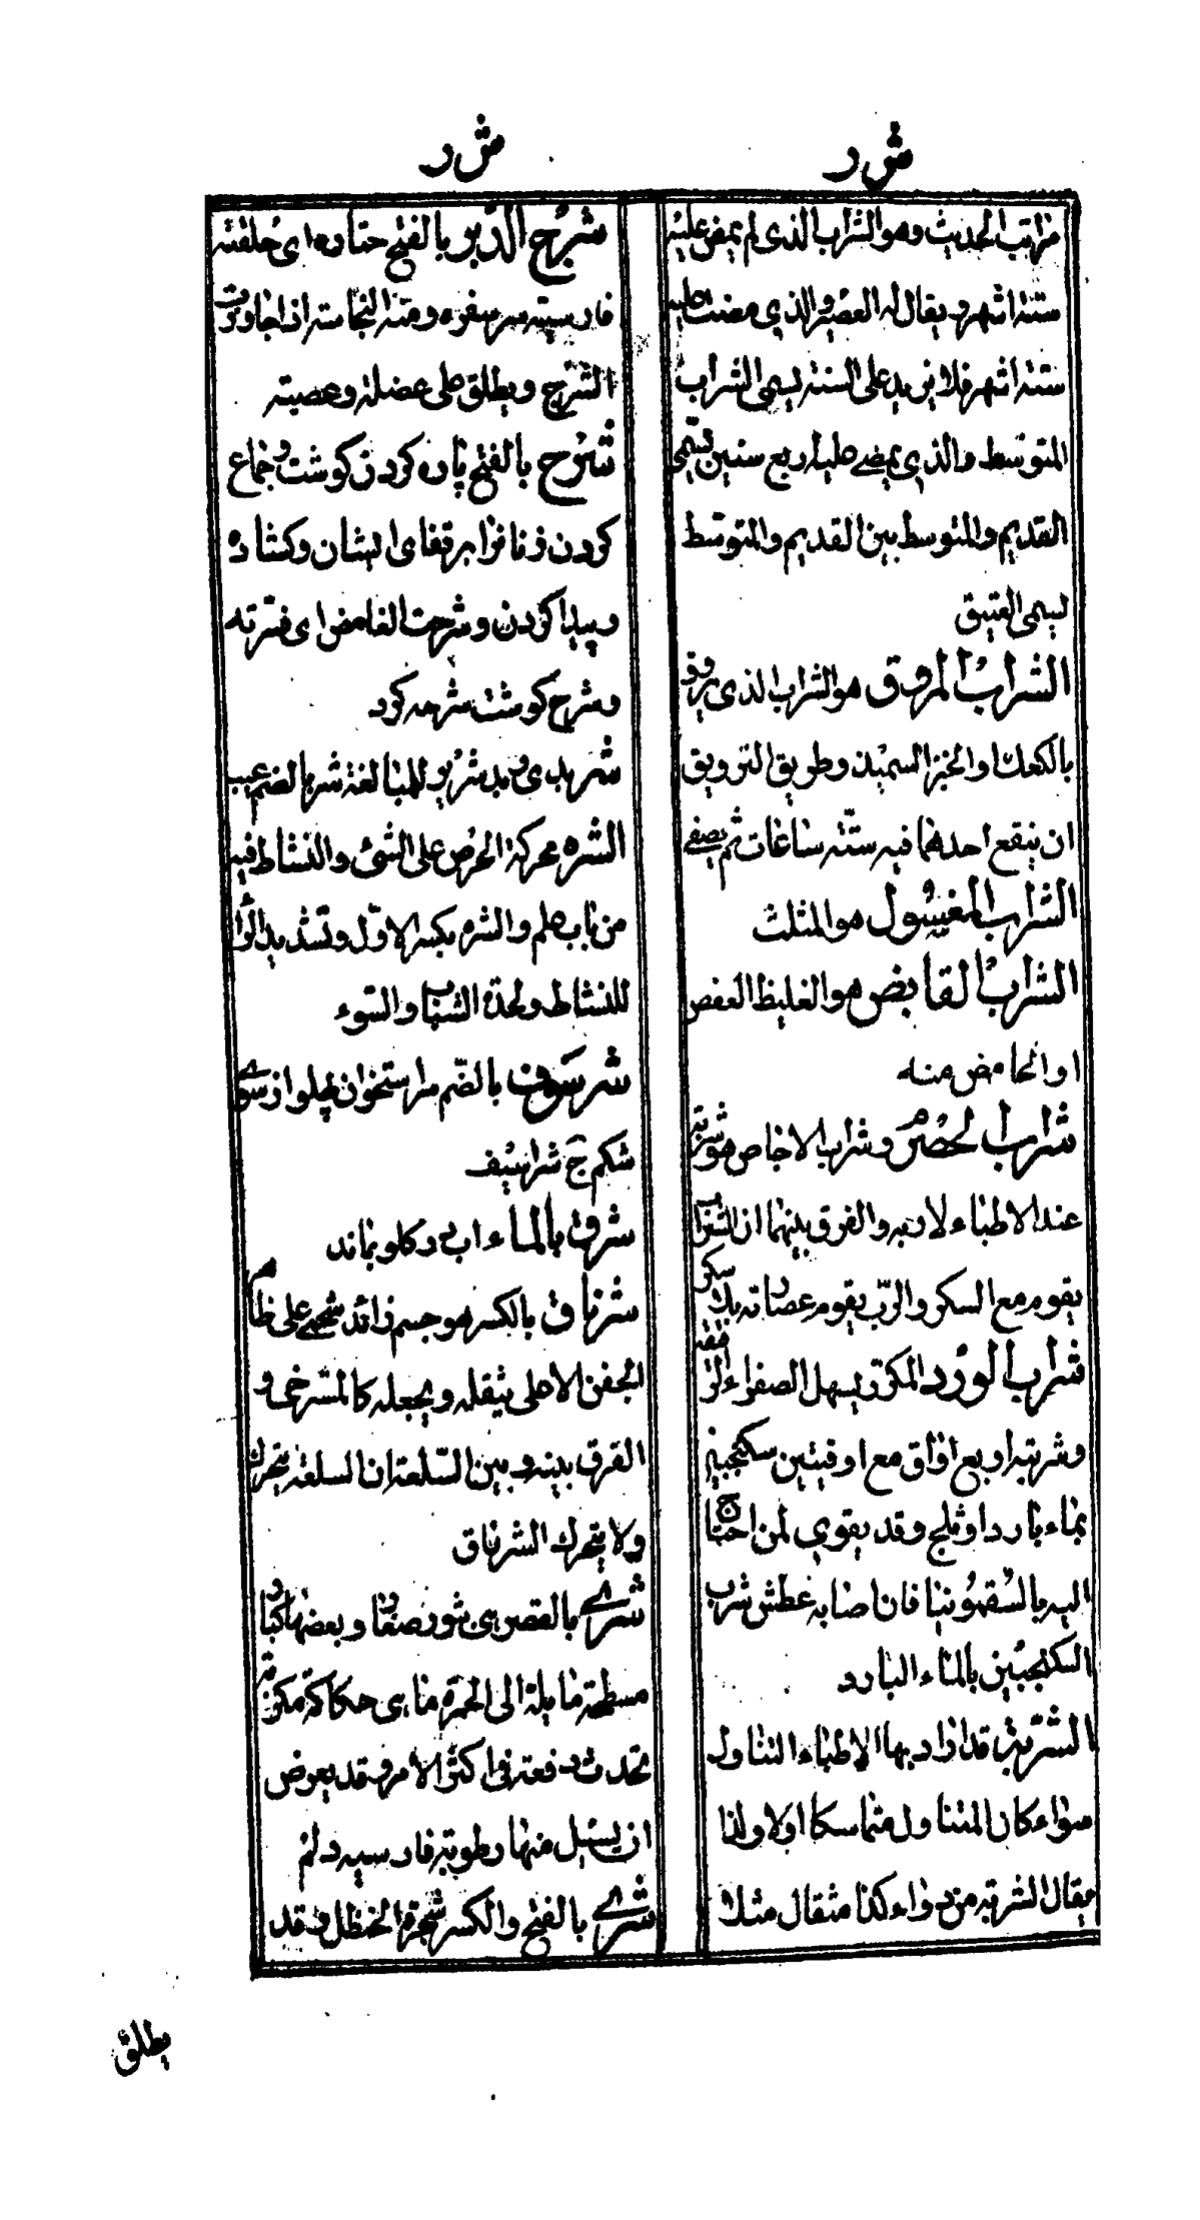 ش ر
مراتب الحديث وهو الشراب الذی لم يمض عليه
ستة اشهر ويقال له العصير والذي مضت عليه
ستة اشهر فلا يزيد على السنة يسمى الشراب
المتوسط والذي يمضے عليه اربع سنين يسمى
القديم والمتوسط بين القديم والمتوسط
يسمى العتيق
الشراب المروق هو الشراب الذی يروق
بالكعك او الخبز السميذ وطريق الترويق
ان ينقع احدهما فيه ستة ساعات ثم يصفے
الشراب المغسول هو المثلث
الشراب القابض هو الغليظ العفص
او الحامض منه
شراب الحصرم وشراب الاجاص هو شربة
عند الاطباء لا ربه والفرق بينهما ان الشراب
يقوم مع السكر والرب يقوم عصارته بلا سكر
شراب الورد المكرر يسهل الصفراء الرقيقة
وشربته اربع اواق مع اوقيتين سكنجبين
بماء بارد او ثلج وقد يقوي لمن احتاج
اليه بالسقمونيا فان اصابه عطش شرب
السكنجبين بالماء البارد
الشربة قد اراد بها الاطباء التناول
سواء كان المتناول متماسكا اولا ولذا
يقال الشربة من دواء كذا مثقال مثلا
ش ر
شرج الدبر بالفتح حتاره ای حلقته
فارسيته سر سفره ومنه النجاسة اذا جاوزت
الشرج ويطلق على عضلة وعصبته
شرح بالفتح پاره كردن گوشت و جماع
كردن زنانرا بر قفای ايشان وكشاده
و پيدا كردن وشرحت الغامض ای فسرته
وشرح گوشت شرحه كرد
شره بدی بد شرير للمبالغة شر بالضم عيب
الشره محركة الحرص على الشیء والنشاط فيه
من باب علم والشره بكسر الاول وتشديد الراء
للنشاط ولحدة الشباب والسوء
شرسوف بالضم سر استخوان پهلو از سوے
شكم ج شراسيف
شرق بالماء اب در گلو بماند
شرناق بالكسر هو جسم زائد شحمے على ظاهر
الجفن الاعلى يثقله ويجعله كالمسترخی و
الفرق بينه وبين السلعة ان السلعة يتحرك
ولا يتحرك الشرناق
شرے بالقصر هی بثور صغار وبعضها كبار
مسطحة مايلة الى الحمرة ماهی حكاكة مكربة
تحدث دفعة فی اكثر الامر و قد يعرض
ان يسيل منها رطوبة فارسيه دلم
شرے بالفتح والكسر شجرة الحنظل وقد
يطلق